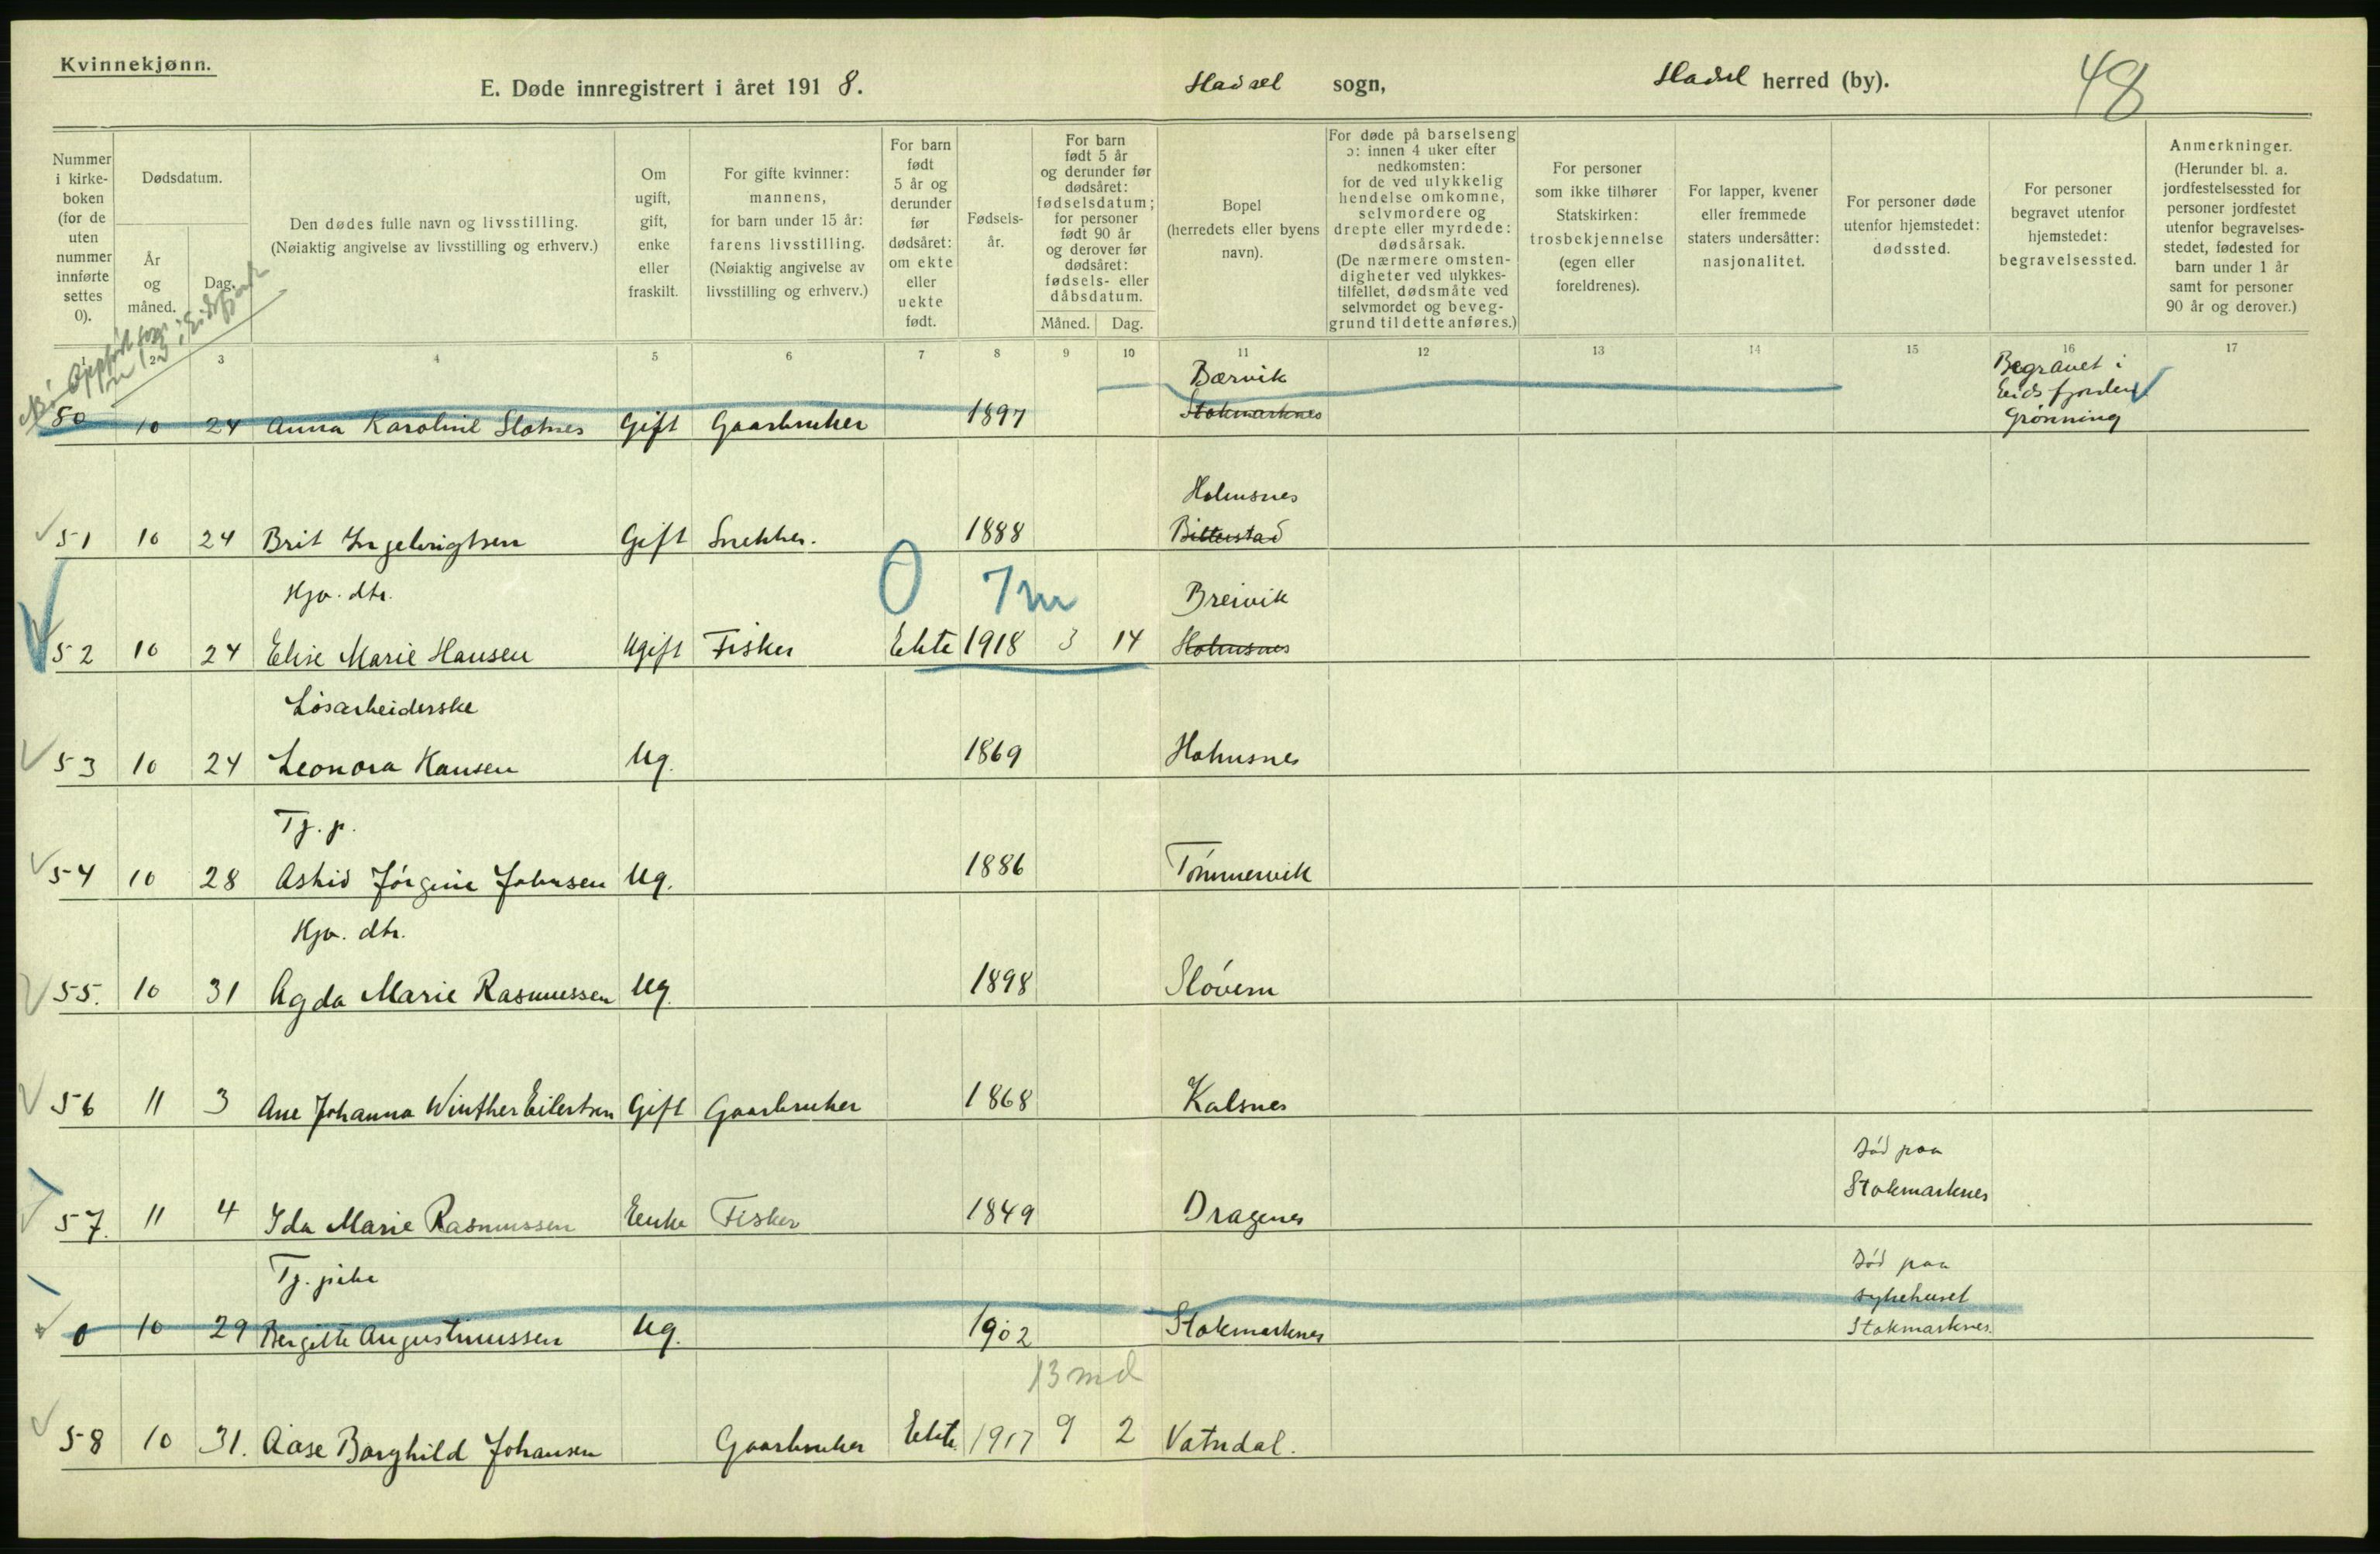 Kvinnekjønn.
E. Døde innregistrert i året 1918. Hadsel sogn, Hadsel herred (by). 48
Nummer i kirkeboken (for de uten nummer innførte settes 0).
Dødsdatum.
År og måned.
Dag.
Den dødes fulle navn og livsstilling.
(Nøiaktig angivelse av livsstilling og erhverv.)
Om ugift, gift, enke eller fraskilt.
For gifte kvinner: mannens, for barn under 15 år: farens livsstilling. (Nøiaktig angivelse av livsstilling og erhverv.)
For barn født 5 år og derunder før dødsåret: om ekte eller uekte født.
Fødselsår.
For barn født 5 år og derunder før dødsåret: fødselsdatum; for personer født 90 år og derover før dødsåret: fødsels- eller dåbsdatum.
Måned. Dag.
Bopel (herredets eller byens navn).
For døde på barselseng ɔ: innen 4 uker efter nedkomsten: for de ved ulykkelig hendelse omkomne, selvmordere og drepte eller myrdede: dødsårsak. (De nærmere omstendigheter ved ulykkestilfellet, dødsmåte ved selvmordet og beveggrund til dette anføres.)
For personer som ikke tilhører Statskirken: trosbekjennelse (egen eller foreldrenes).
For lapper, kvener eller fremmede staters undersåtter: nasjonalitet.
For personer døde utenfor hjemstedet: dødssted.
For personer begravet utenfor hjemstedet: begravelsessted.
Anmerkninger. (Herunder bl. a. jordfestelsessted for personer jordfestet utenfor begravelsesstedet, fødested for barn under 1 år samt for personer 90 år og derover.)
1 2 3 4 5 6 7 8 9 10 11 12 13 14 15 16 17
Bærvik Begravet i
Eidsfjorden
50 10 24 Anna Karoline Slotnes Gift Gaarbruker 1897 Stokmarknes Grønning
Holmsnes
51 10 24 Brit Ingebrigtsen Gift Snekker. 1888 Bitterstad
0 7m
Hjv. dtr. Breivik
52 10 24 Elise Marie Hansen Ugift Fisker Ekte 1918 3 14 Holmsnes
Løsarbeiderske
53 10 24 Leonora Hansen Ug. 1869 Holmsnes
Tj. p.
54 10 28 Astrid Jörgine Johnsen Ug. 1886 Tömmervik
Hjv. dtr.
55. 10 31 Agda Marie Rasmussen Ug. 1898 Slóvern
56 11 3 Ane Johanna Winther Eilertsen Gift Gaarbruker 1868 Kalsnes
Död paa
Stokmarknes
57. 11 4 Ida Marie Rasmussen Enke Fisker 1849 Dragenes
Tj. pike Död paa
sykehuset
0 10 29 Bergitte Augustinussen Ug. 1902 Stokmarknes Stokmarknes.
13 md
58 10 31. Aase Borghild Johansen Gaarbruker Ekte. 1917 9 2 Vatndal.